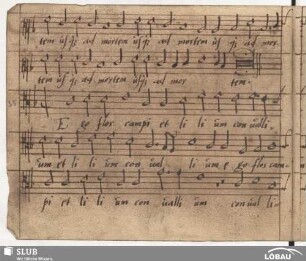 tem usq; ad mortem usq; ad mortem us q; ad mor
tem usq; ad mortem usq; ad mor tem.
E go flos campi et li li um con valli-
um et li li um con vall- li um e go flos cam-
pi et li li um con valli um con val li-
SLUB
Wir führen Wissen.
LÖBAU